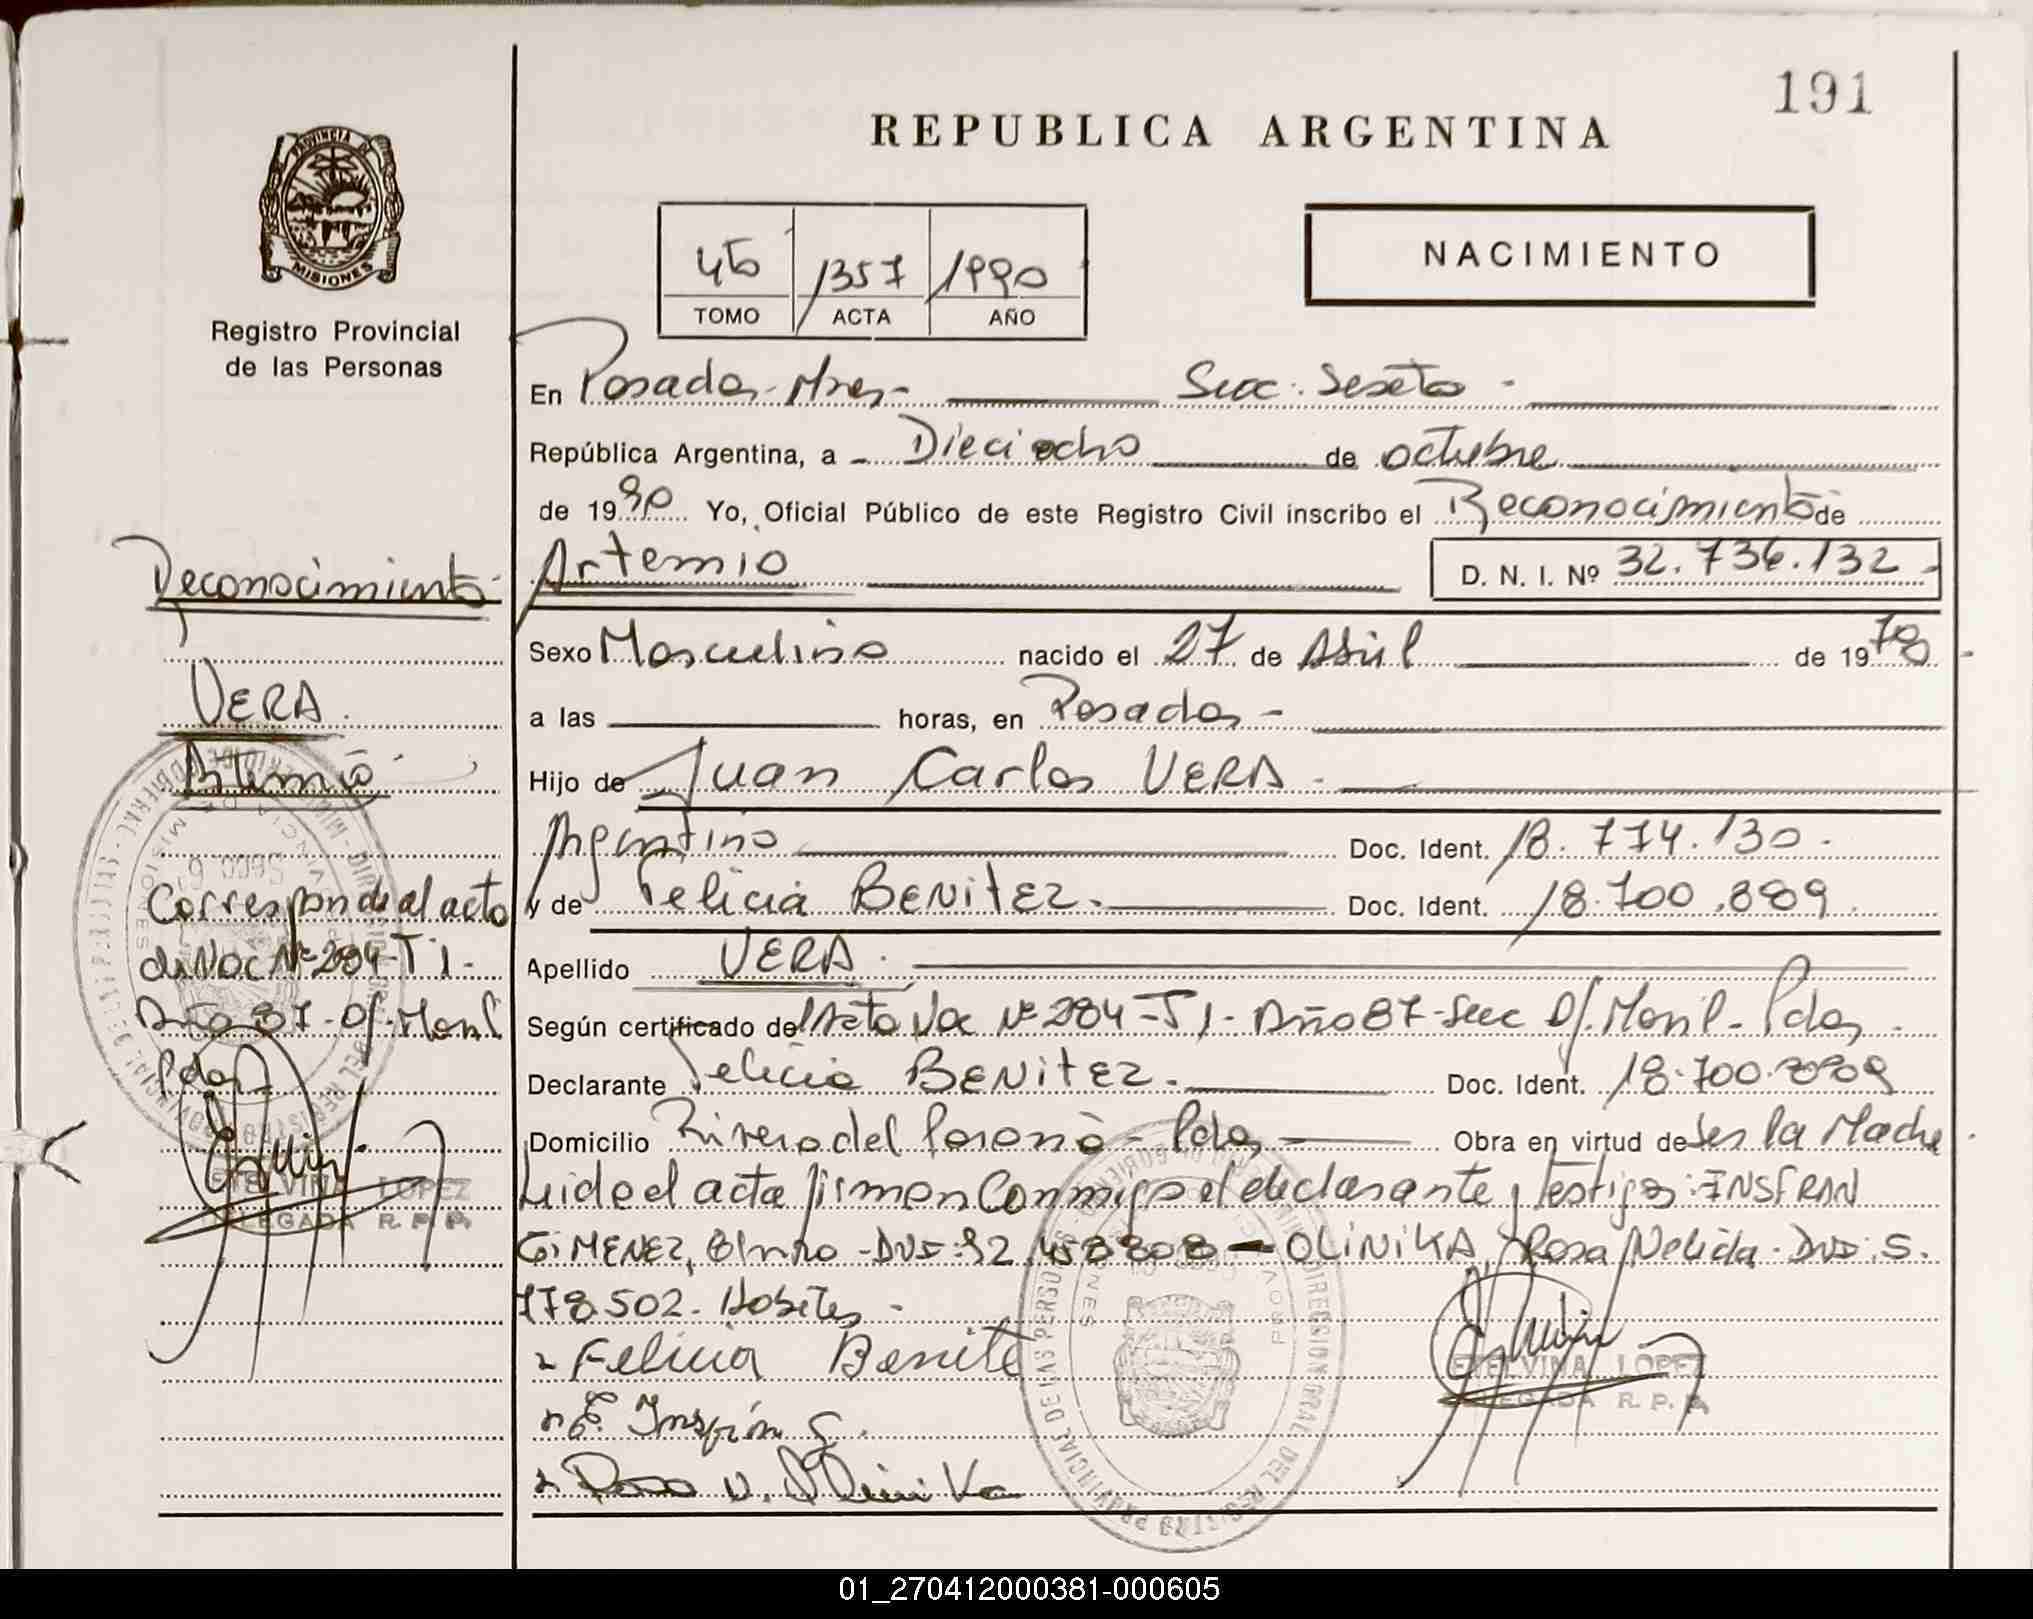 191
REPUBLICA ARGENTINA
PROVINCIA DE
MISIONES
Registro Provincial
de las Personas
1357 1990
TOMO ACTA AÑO
NACIMIENTO
En Posadas - Mnes - Secc: Sexeta -
República Argentina, a - Dieciocho de octubre
de 1990 Yo, Oficial Público de este Registro Civil inscribo el Reconocimiento de
Artemio D. N. I. Nº 32.736.132 -
Sexo Masculino nacido el 27 de Abril de 1978
a las horas, en Posadas -
Hijo de Juan Carlos VERA -
Argentino Doc. Ident. 18.774.130 -
y de Felicia BENITEZ. Doc. Ident. 18.700.889.
Apellido VERA.
Según certificado de Acta Nac Nº 284-T1- Año 87-Secc Of. Movil - Pdas.
Declarante Felicia BENITEZ. Doc. Ident. 18.700.889
Domicilio Rivera del Paraná - Pdas Obra en virtud de Ser la Madre.
Leida el acta firman Conmigo el declarante y testigos: INSFRAN
GIMENEZ, - DNI: 92. - OLINIKA, Rosa Nelida - DNI: 5.
778.502. Habiles -
Felicia Benite
E. Insfrán G.
Rosa N. Olinika
ETELVINA LOPEZ
DELEGADA R. P. P.
Reconocimiento
VERA.
Artemio
Corresponde al acta
de Nac Nº 284-T1-
Año 87-Of. Movil
Pdas
ETELVINA LOPEZ
DELEGADA R. P. P.
01_270412000381-000605